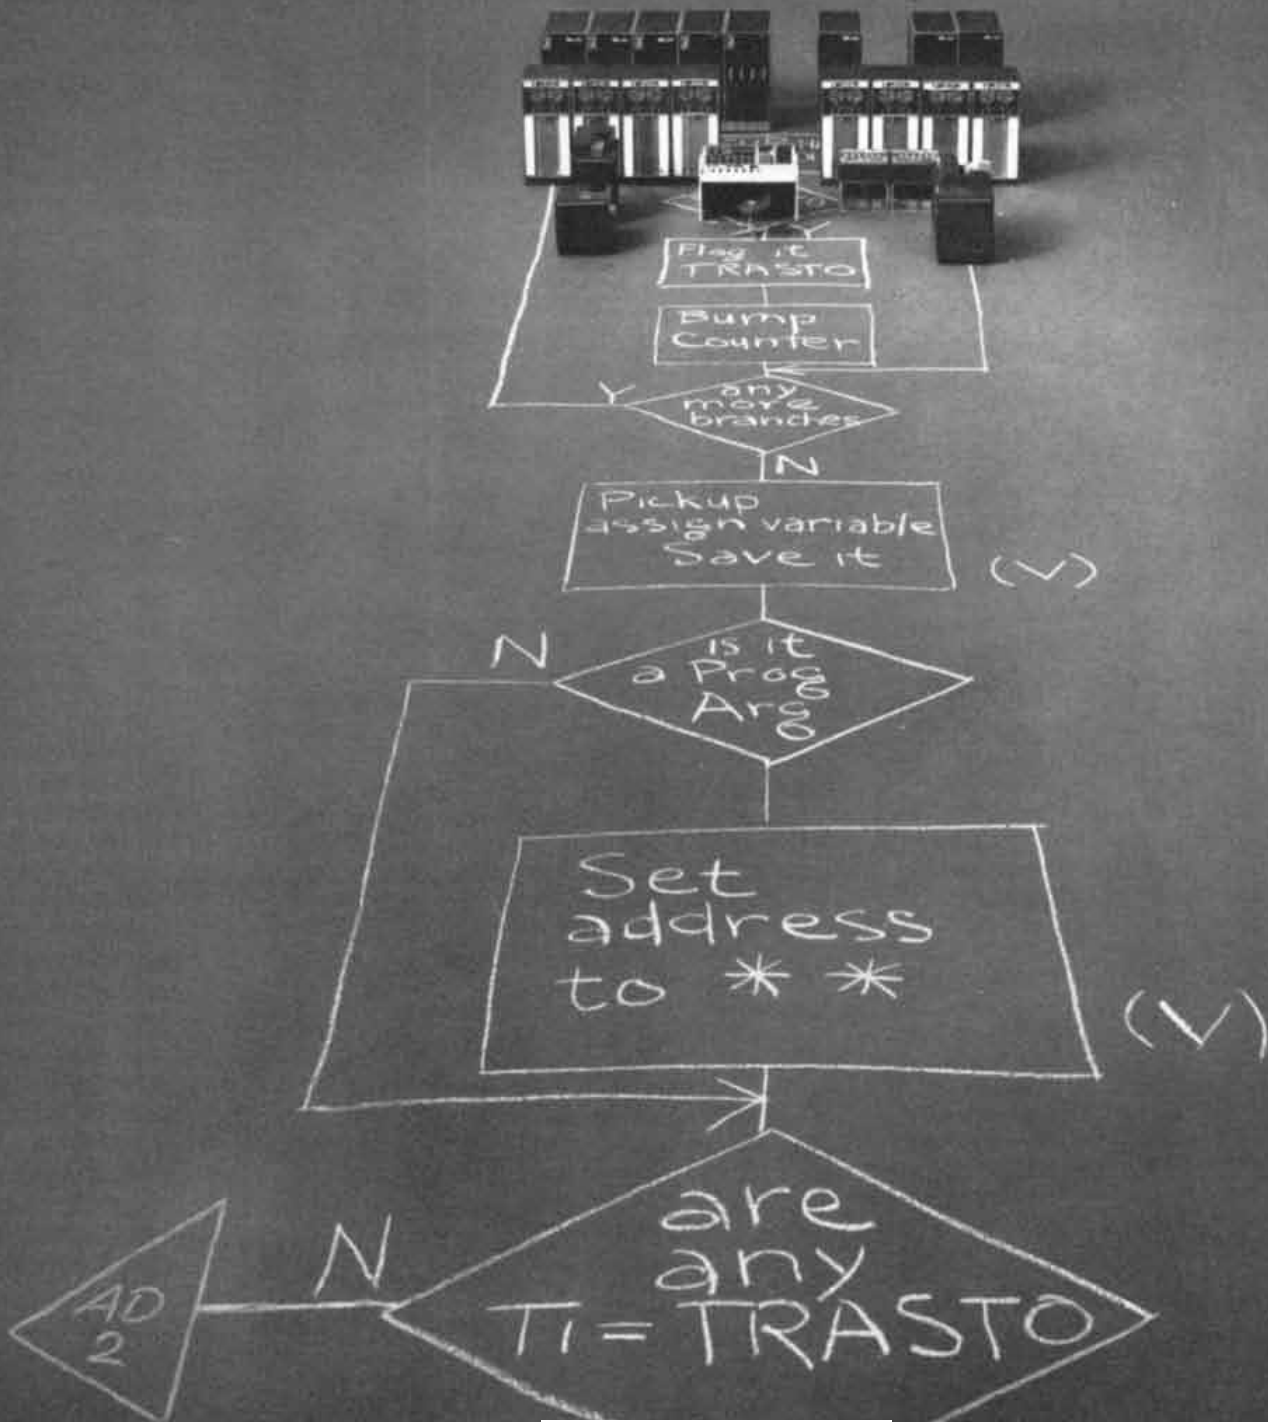 Y
Flag it
TRASTO
Bump
Counter
Y
any
more
branches
N
Pickup
assign variable
Save it
(V)
N
is it
a Prog
Arg
Set
address
to * *
(V)
are
any
N
AD
2
Ti = TRASTO